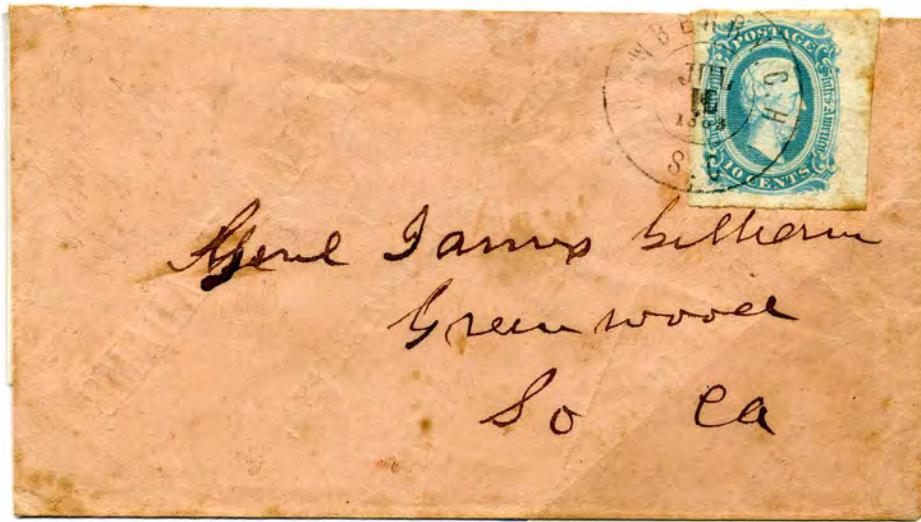 NEWBERRY C.H.
JUL
16
S.C.
POSTAGE
10 CENTS
Genl James Gillam
Greenwood
So Ca